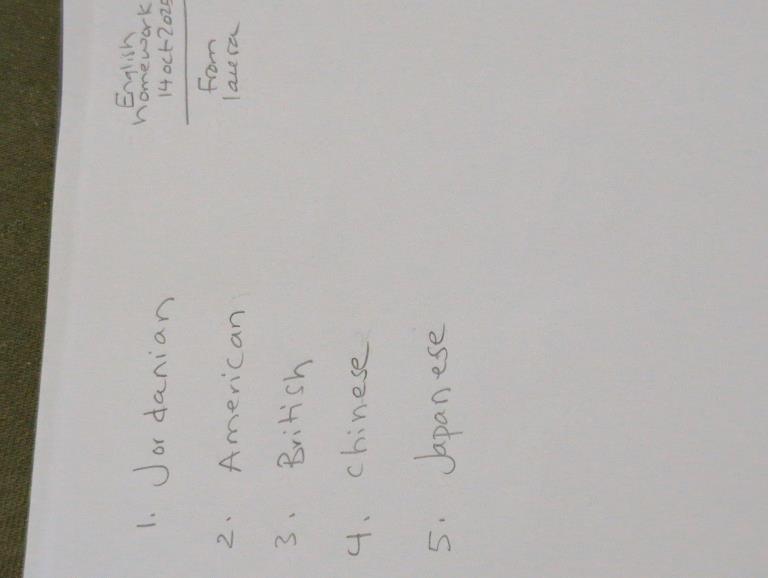 English
homework
14 oct 2025
From
laura
1. Jordanian
2. American
3. British
4. chinese
5. Japanese